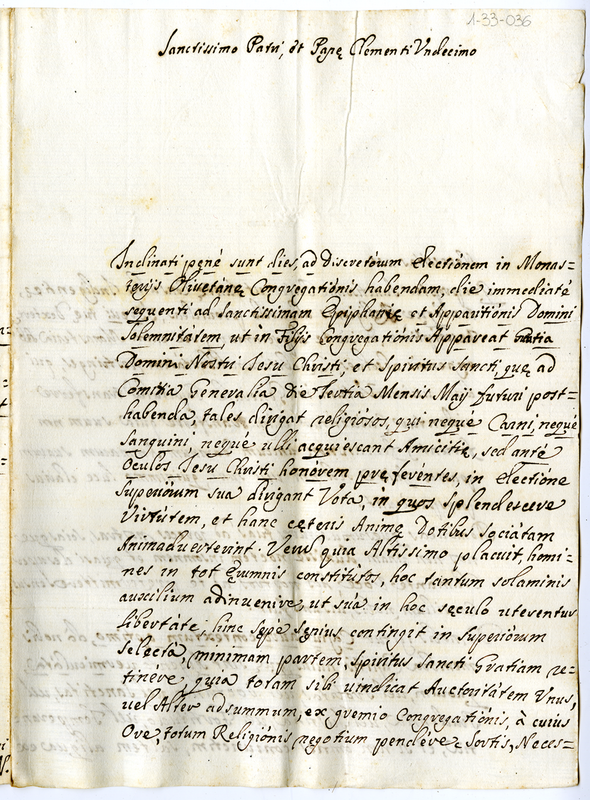 1-33-036
Sanctissimo Patri, et Papę Clementi Undecimo
Inclinati pené sunt dies, ad Discretórum Electiónem in Monas=
terijs Olivetánę Congregatiónis habendam, die immediaté
sequenti ad Sanctissimam Epiphanię et Apparitiónis Domini
Solemnitátem, ut in Filijs Congregatiónis Appáreat Gratia
Domini Nostri Jesu Christi, et Spíritus Sancti, quę ad
Comitia Generalia die Tertia Mensis Maij futuri post=
habenda, tales dirigat religiósos, qui neque Carni, neque
Sanguini, neque ulli acquiescant Amicitię, sed anté
Oculos Jesu Christi honórem pręferéntes, in electióne
Superiórum sua dirigant Vota, in quos splendescere
Virtútem, et hanc cęteris Animę Dotibus sociátam
Animaduerterint. Verú quia Altissimo placuit homi=
nes in tot Ęrumnis constitútos, hoc tantum solaminis
auxilium adinuenire, ut súa in hoc sęculo uterentur
libertáte; hinc sępé sępius contingit in Superiórum
selecta, minimam partem Spiritus Sancti Gratiam re=
tinére, quia totam sibi uindicat Auctoritátem Unus,
uel Alter adsummum, ex gremio Congregatiónis, à cuius
Ore, totum Religiónis negotium pendére Sortis, Neces=